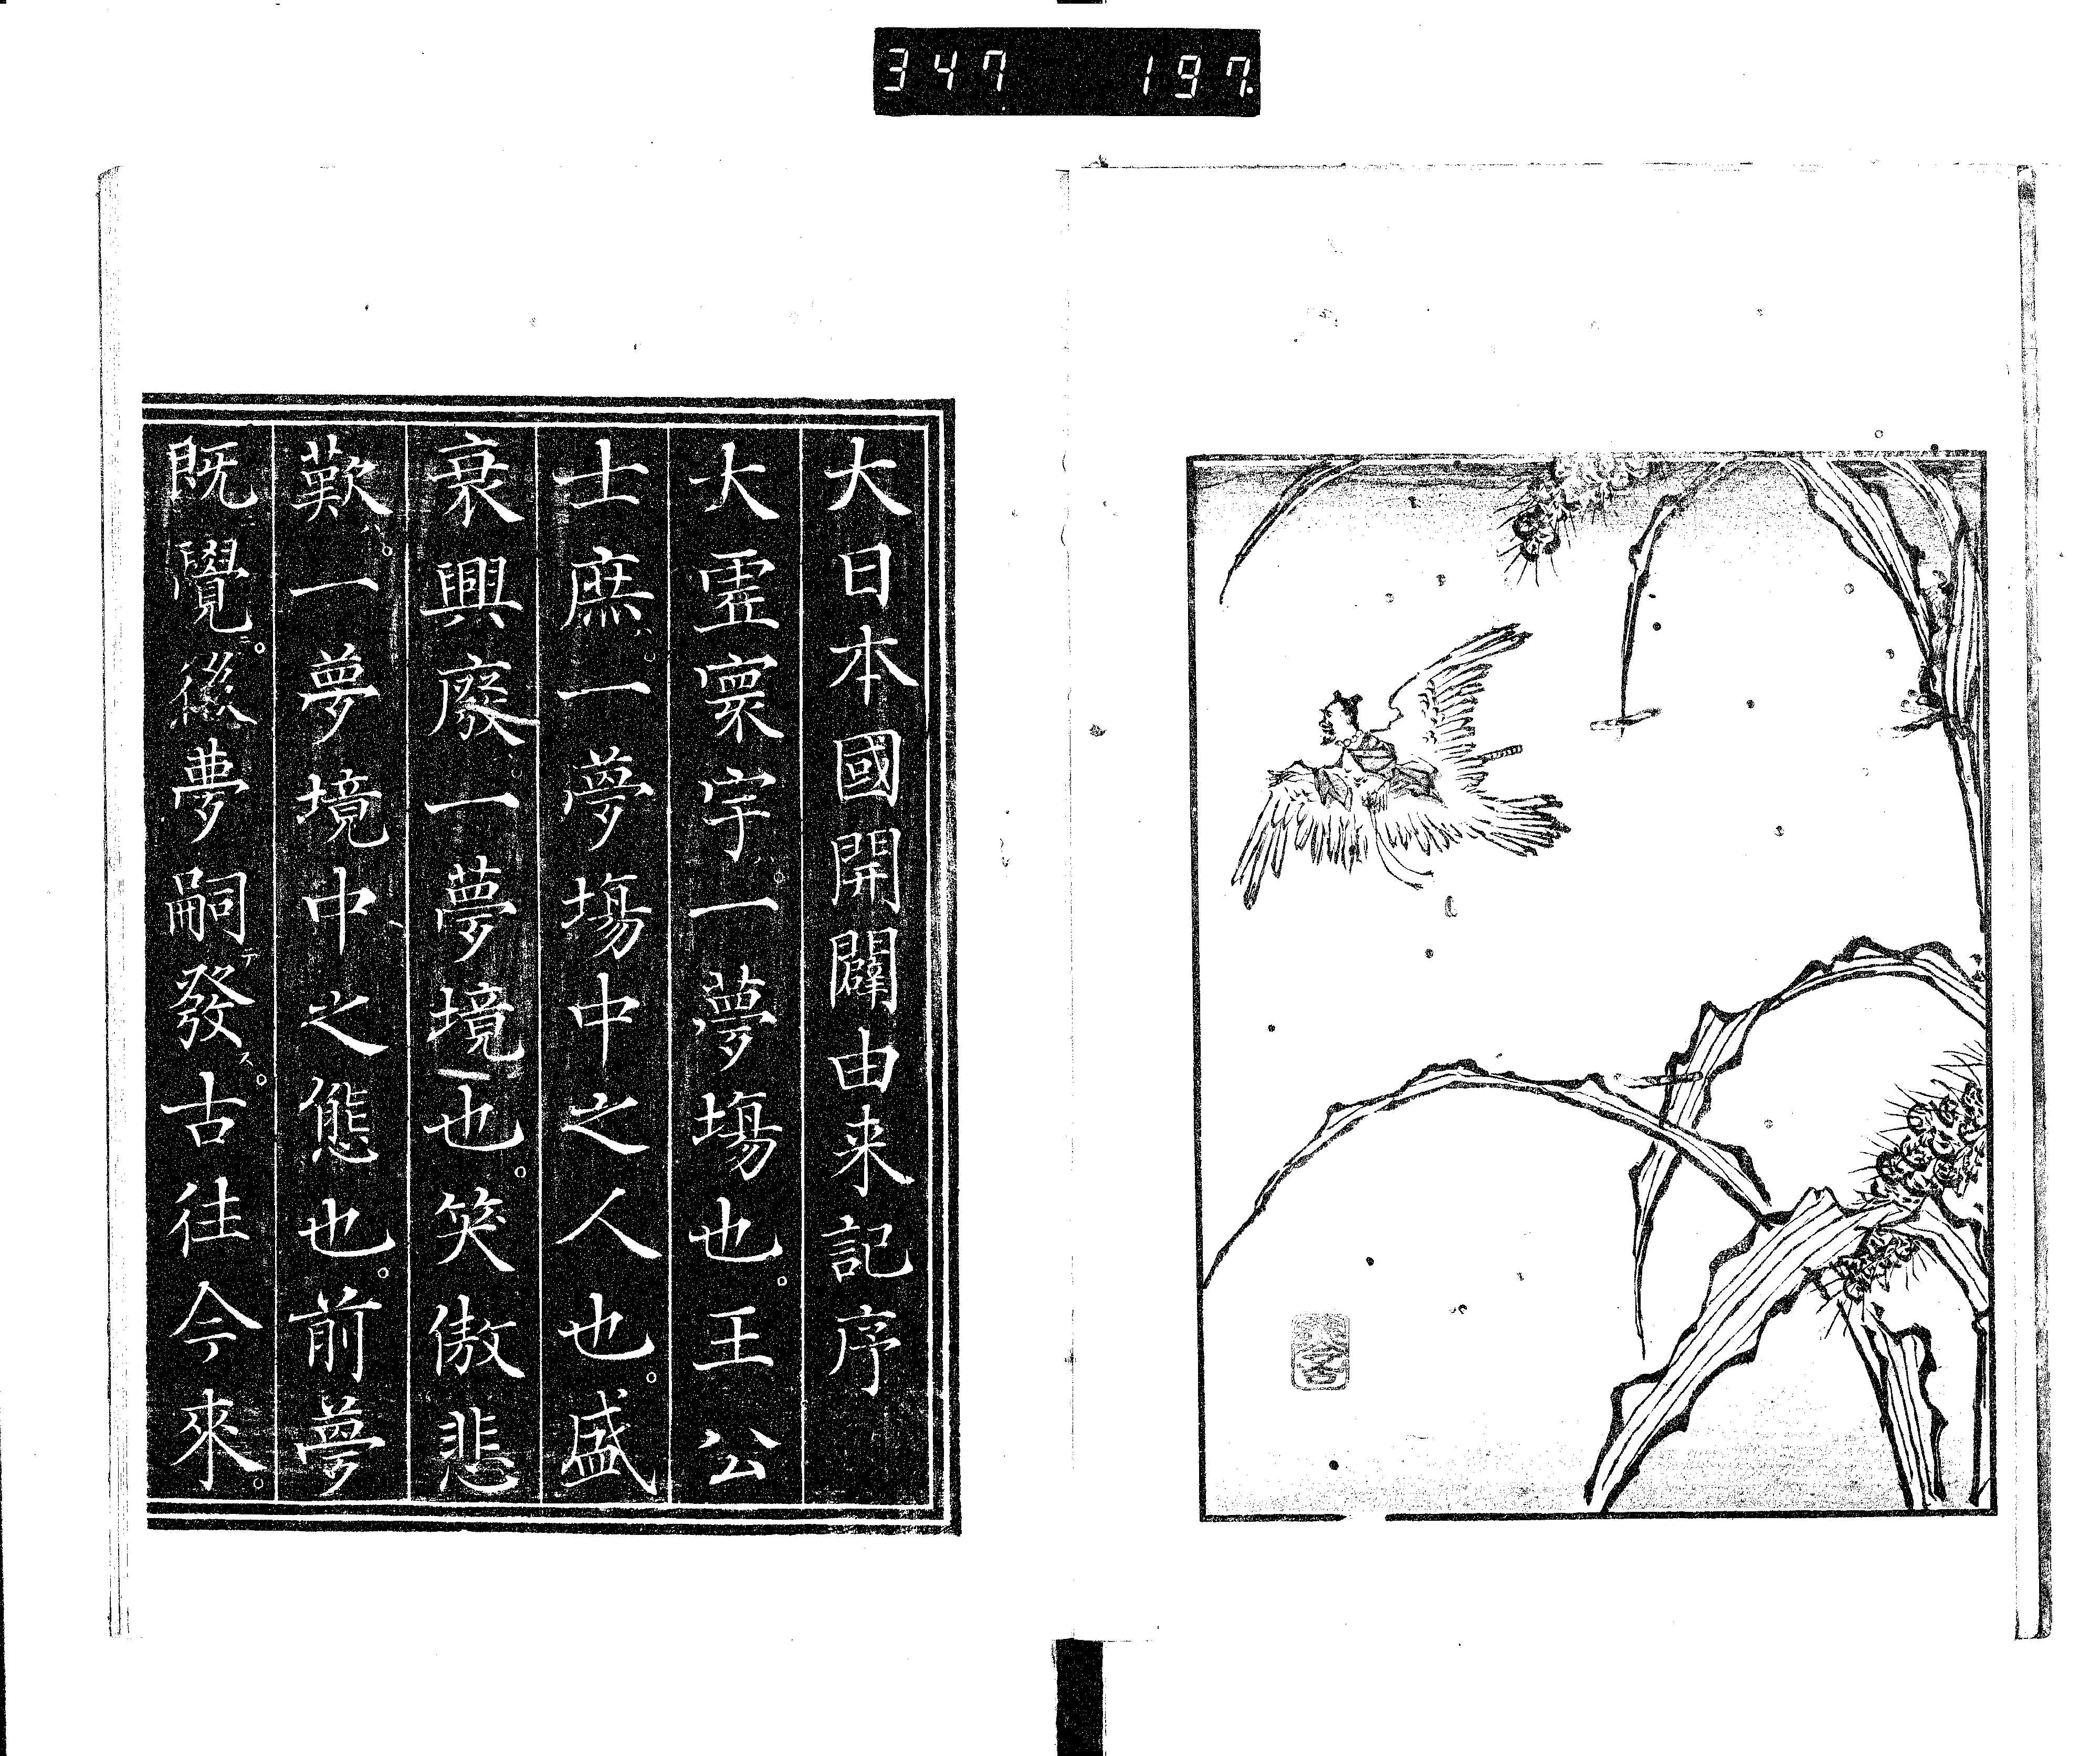 347 197.
大日本國開闢由来記序
大虗寰宇ハ。一夢塲也。王公
士庶ハ。一夢塲中之人也。盛
衰興廢ハ。一夢境也。笑傲悲
歎ハ。一夢境中之態也。前夢
既覺ニ。後夢嗣テ發ス。古往今來。